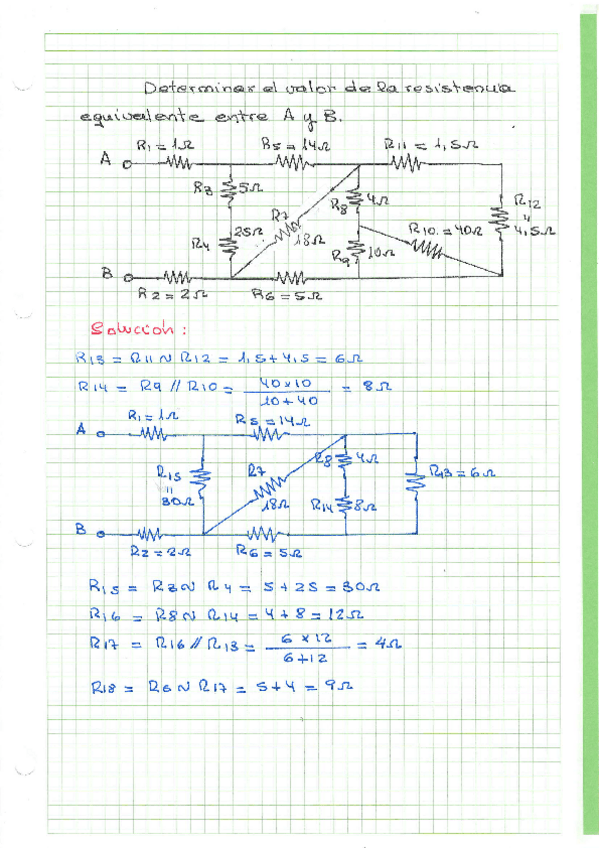 Determinar el valor de la resistencia
equivalente entre A y B.
R1 = 1Ω R5 = 14Ω R11 = 1,5Ω
A
R3 5Ω R8 4Ω R12
R7 "
25Ω 18Ω R10 = 40Ω 4,5Ω
R4 R9 10Ω
B
R2 = 2Ω R6 = 5Ω
Solución:
R13 = R11 ~ R12 = 1,5 + 4,5 = 6Ω
R14 = R9 // R10 = 40x10 / 10+40 = 8Ω
R1 = 1Ω R5 = 14Ω
A
R15 R7 R8 4Ω R13 = 6Ω
"
30Ω 18Ω R14 8Ω
B
R2 = 2Ω R6 = 5Ω
R15 = R3 ~ R4 = 5 + 25 = 30Ω
R16 = R8 ~ R14 = 4 + 8 = 12Ω
R17 = R16 // R13 = 6 x 12 / 6+12 = 4Ω
R18 = R6 ~ R17 = 5 + 4 = 9Ω